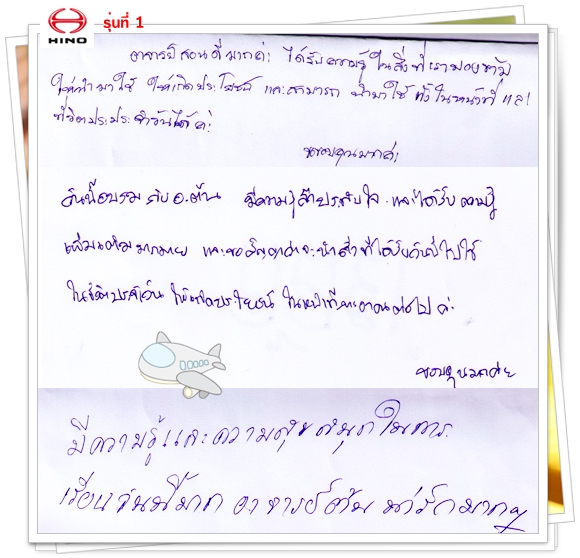 HINO รุ่นที่ 1
อาจารย์สอนดีมากค่ะ ได้รับความรู้ในสิ่งที่เรามองข้าม
ให้นำมาใช้ ให้เกิดประโยชน์ และสามารถ นำมาใช้ ทั้งในหน้าที่ และ
ชีวิตประจำวันได้ค่ะ
ขอบคุณมากค่ะ
วันนี้อบรม กับ อ.ต้น มีความรู้สึกประทับใจ และได้รับความรู้
เพิ่มเติมมากมาย และขอสัญญาว่าจะนำสิ่งที่ได้รับวันนี้ไปใช้
ในชีวิตประจำวัน ให้เกิดประโยชน์ ในหน้าที่ ต่อไป ค่ะ
ขอบคุณมากค่ะ
มีความรู้และความสุขสนุกในการ
เรียนวันนี้มาก อาจารย์ต้น น่ารักมากๆ